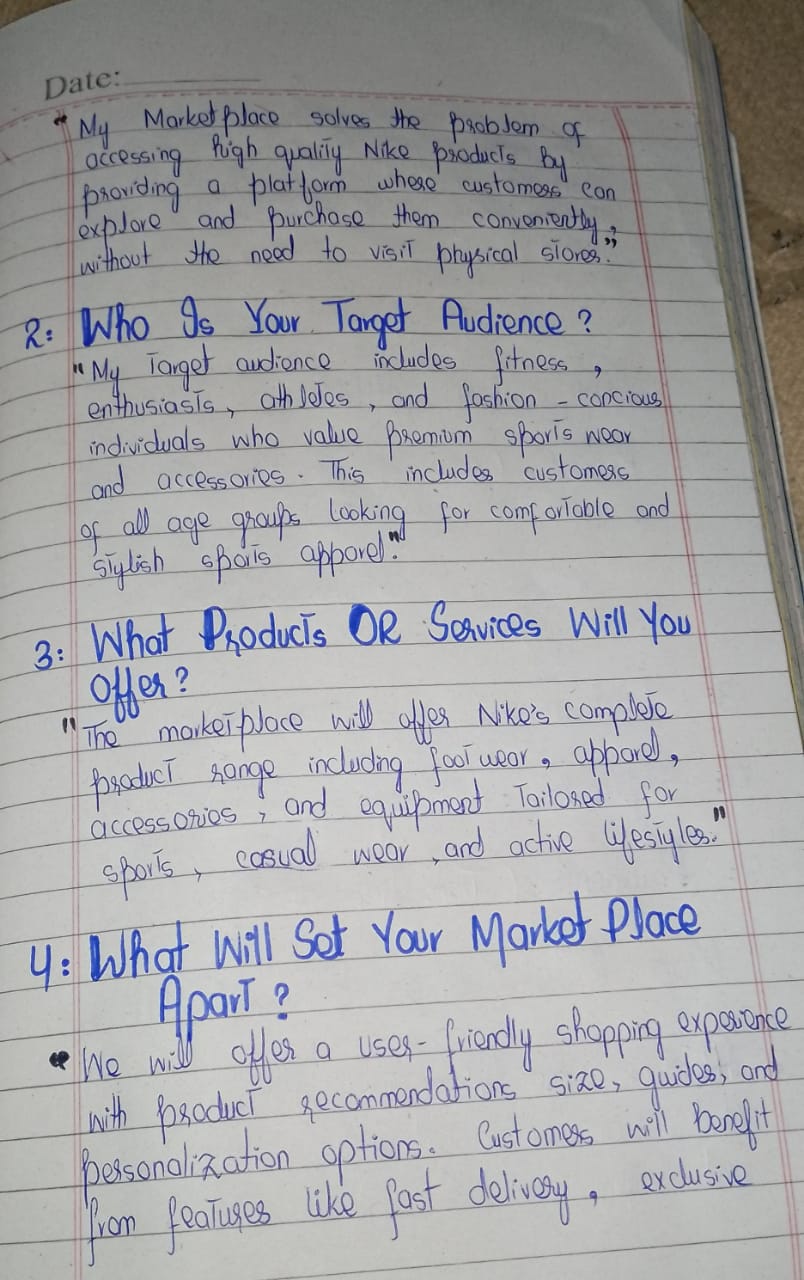 Date:
"My Marketplace solves the problem of
accessing high quality Nike products by
providing a platform where customers can
explore and purchase them conveniently,
without the need to visit physical stores."
2: Who Is Your Target Audience?
"My Target audience includes fitness,
enthusiasts, athletes, and fashion-concious
individuals who value premium sports wear
and accessories. This includes customers
of all age groups looking for comfortable and
stylish sports apparel."
3: What Products OR Services Will You
Offer?
"The marketplace will offer Nike's complete
product range including footwear, apparel,
accessories, and equipment Tailored for
sports, casual wear, and active lifestyles."
4: What Will Set Your Market Place
Apart?
"We will offer a user-friendly shopping experience
with product recommendations size, guides, and
personalization options. Customers will benefit
from features like fast delivery, exclusive